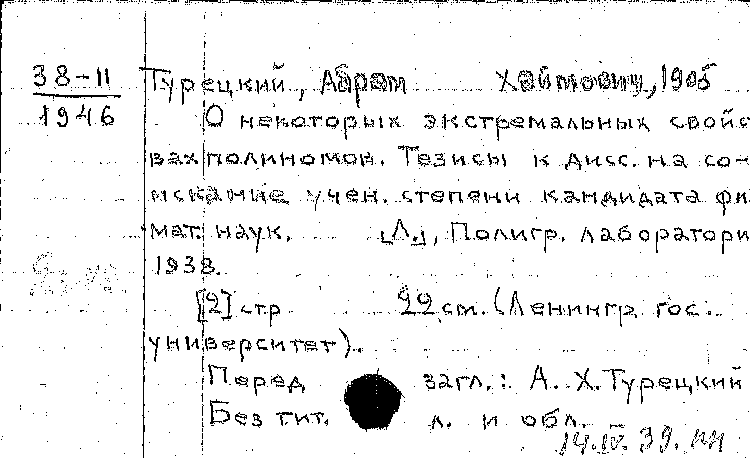 38-11
1946
Турецкий, Абрам Хаймович, 1905
О некоторых экстремальных свойс
вах полиномов. Тезисы к дисс. на со-
искание учен. степени кандидата фи
мат. наук. [Л.], Полигр. лаборатори
1938.
[2] стр 22 см. (Ленингр. гос.
университет).
Перед загл.: А. Х. Турецкий
Без тит. л. и обл.
14.IV.39.